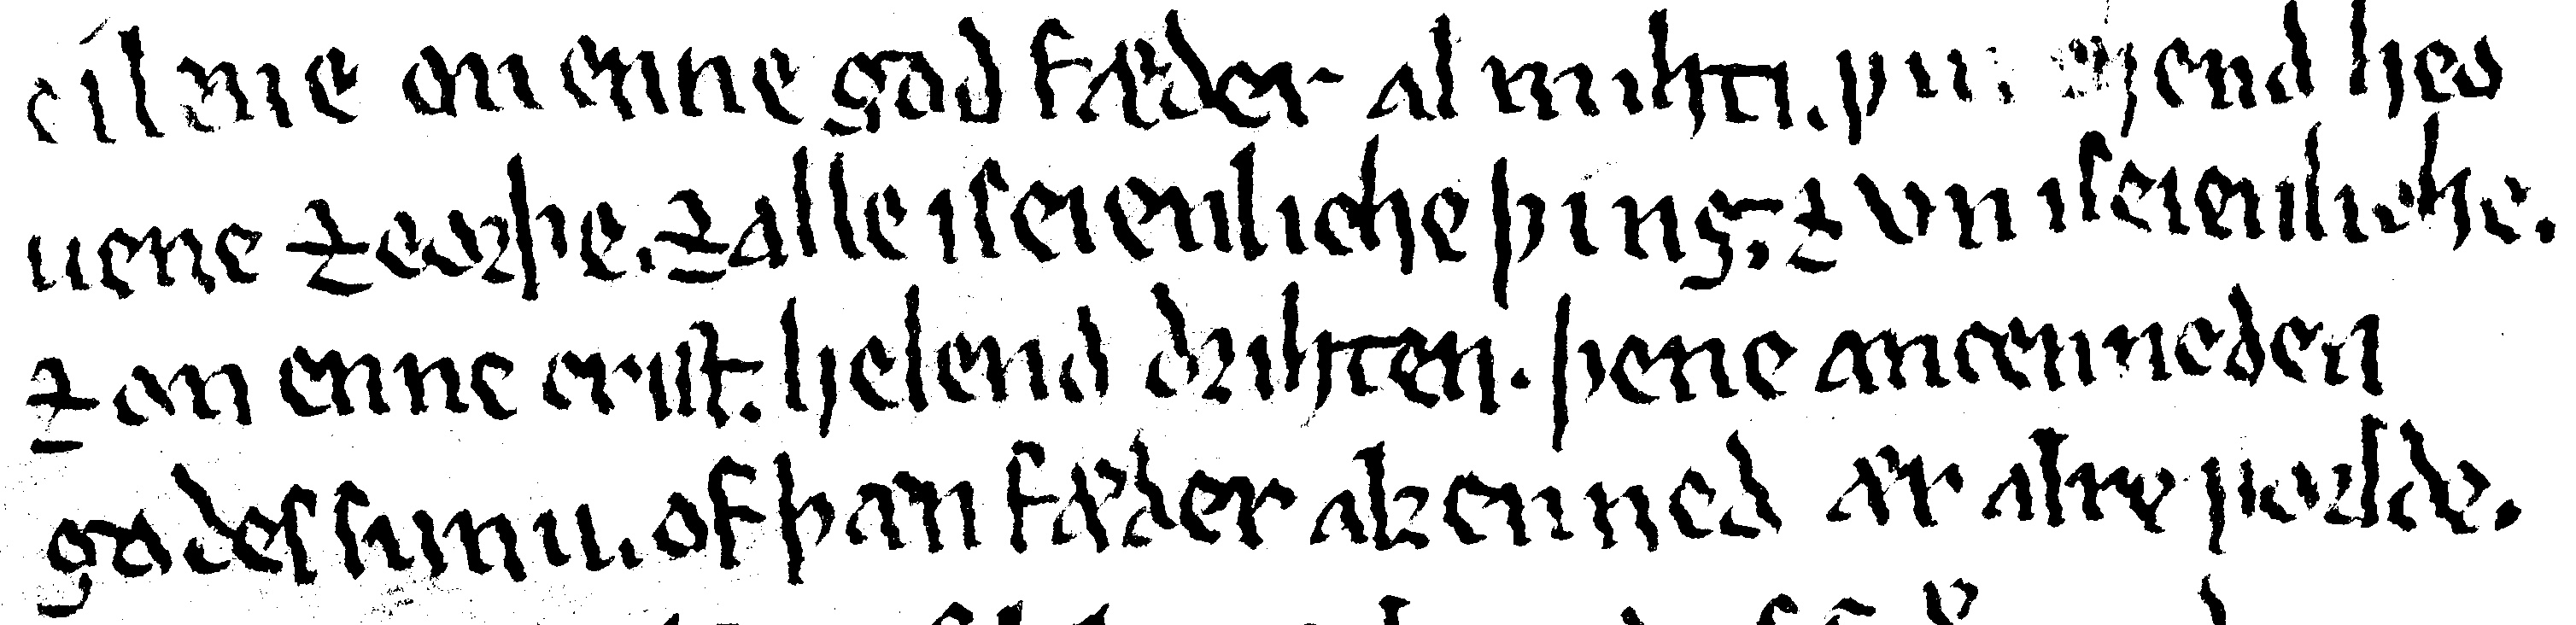 on enne god fæder almihti. heo
uene ⁊ eorþe. ⁊ alle iſeienliche þing. ⁊ vniſeienliche.
⁊ on enne criſt. helend drihten. þene ancenneden
godeſ ſunu. of þan fæder akenned ær alre ƿorlde.